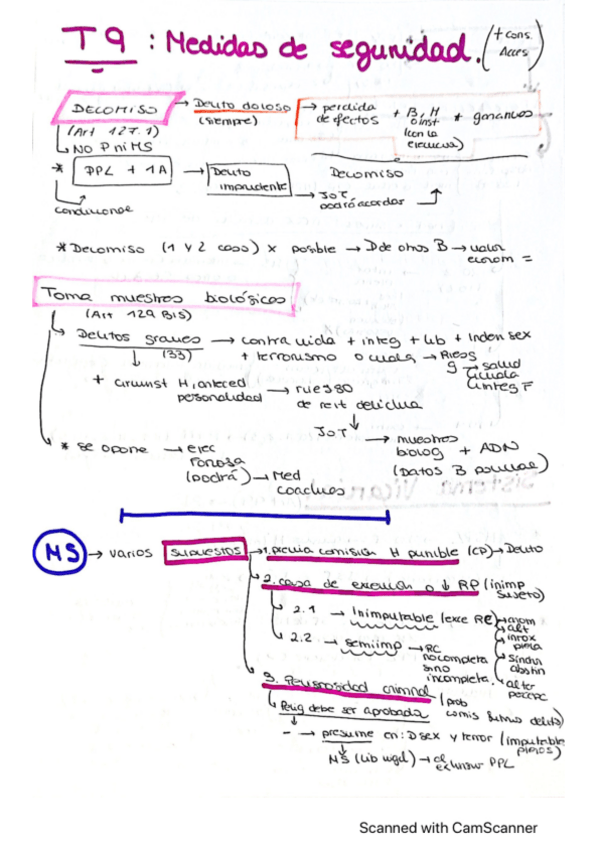 T9 : Medidas de seguridad. (+ Cons. Acces)
DECOMISO → Delito doloso → perdida de efectos + B, H o inst * ganancias
(Art 127.1) (siempre) (con la
↳ NO P ni MS
* PPL + 1A → Delito imprudente Decomiso
→ JoT podrá acordar
* Decomiso (1 y 2 caso) x posible → D de otros B → valor econom =
Toma muestras biológicas
(Art 129 Bis)
↳ Delitos graves → contra vida + integ + lib + indem sex
(33) + terrorismo o cualq → Riesg g → salud
+ circunst H, anteced personalidad → riesgo de reit delictiva
JoT → muestras biolog + ADN
* se opone → ejec forzosa (podrá) → Med
(Datos B
MS → varios supuestos → 1. previa comisión H punible (CP) → Delito
2. causa de exención o ↓ RP (inimp sujeto)
2.1 → Inimputable (exe RC) → anom alt
2.2 → semiimp → RC no completa sino incompleta.
intox plena
síndr abstin
alter percepc
3. Peligrosidad criminal (prob comis futuros delitos)
↳ Pelig debe ser aprobada
- → presume en: D sex y terror (imputable
MS (lib vigil) → PPL
Scanned with CamScanner